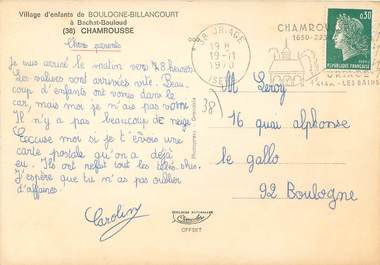 Village d'enfants de BOULOGNE-BILLANCOURT
à Bachat-Bouloud
(38) CHAMROUSSE
Chers parents
Je suis arrivé le matin vers 7.8 heures
Les valises sont arrivées vite. Beau-
coup d'enfants ont vomis dans le
car, mais moi je n'ais pas vomi.
Il n'y a pas beaucoup de neige
Excuse moi si je t'écrit une
carte postale qu'on a déjà
eu. Ils ont refait tout les
J'espère que tu n'as pas oublier
d'affaires.
Caroline
38 URIAGE
19 H
19-11
1973
ISE
CHAMROUS
1650-22
URIAGE
LES BAINS
0,30
REPUBLIQUE FRANCAISE
38
M. Leroy
16 quai alphonse
le gallo
92 Boulogne
Combier
OFFSET